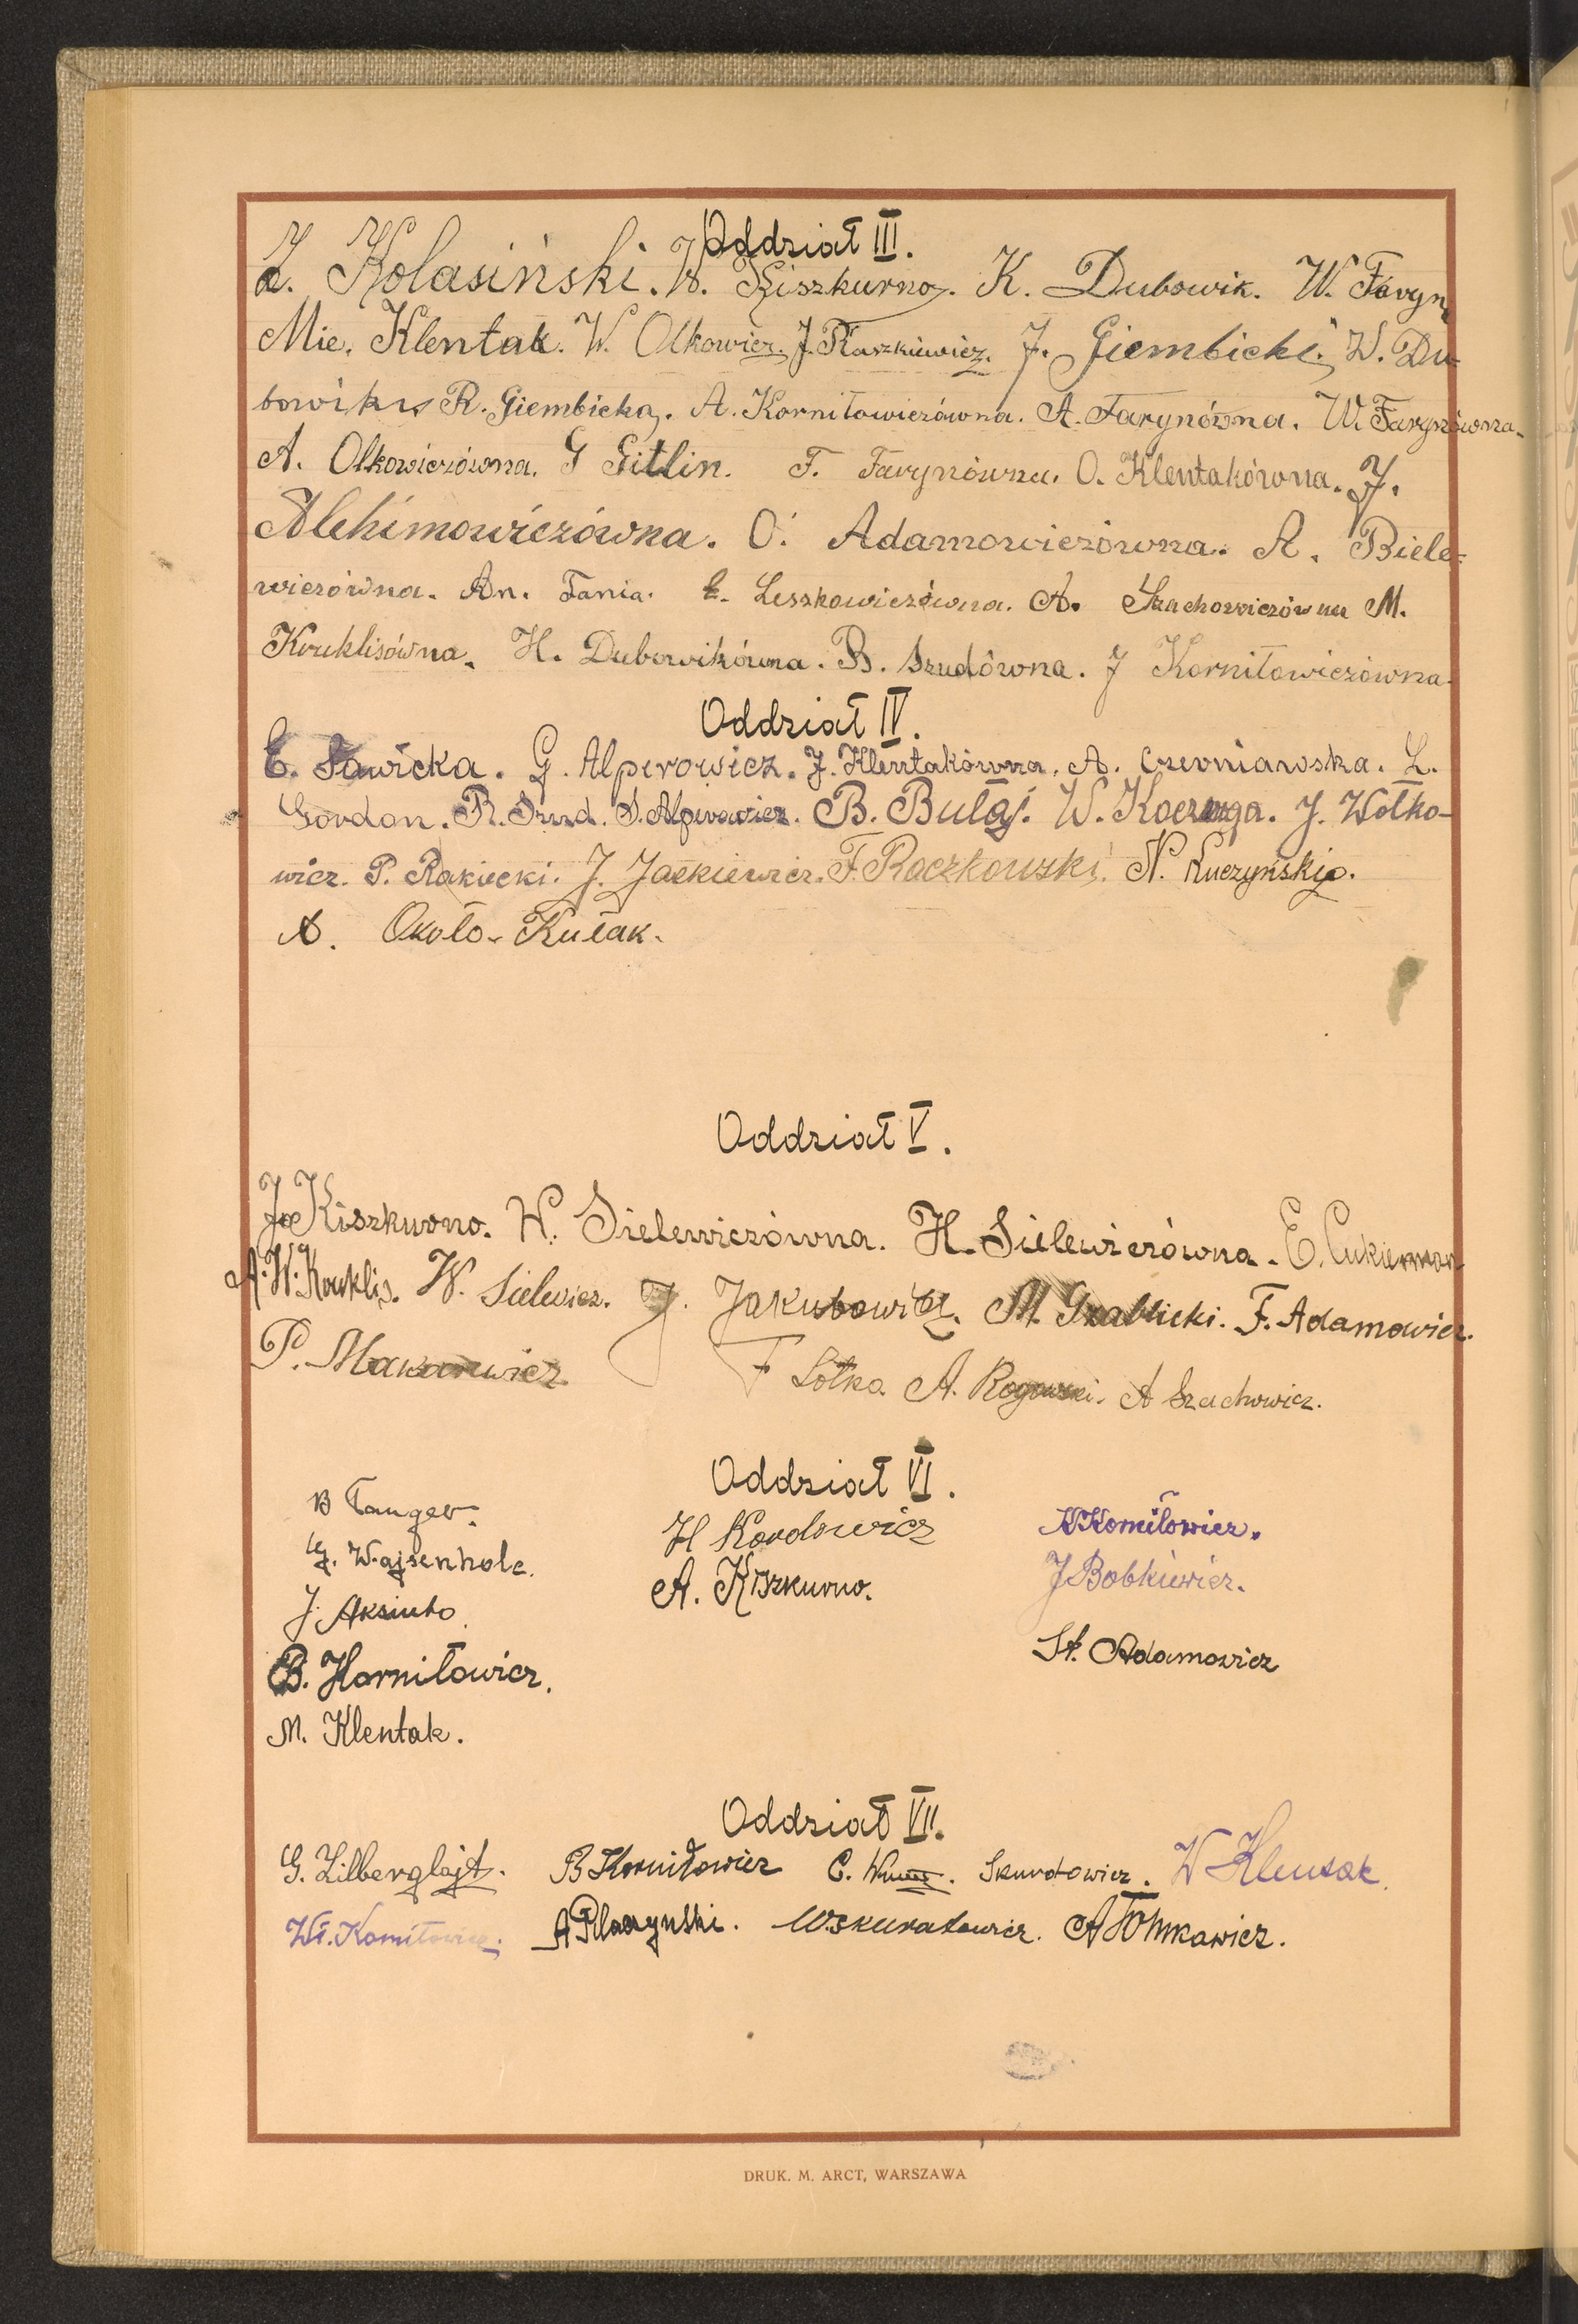 Oddział III.
Z. Kolasiński. W. Kiszkurno. K. Dubowik. W. Faryn
Mie. Klentak. W. Olkowicz. J. Raszkiewicz. J. Giembicki. W. Du-
bowik R. Giembicka. A. Korniłowiczówna. A. Farynówna. W. Farynówna.
A. Olkowiczówna. G Gitlin. F. Farynówna. O. Klentakówna. J.
Alchimowiczówna. O. Adamowiczówna. A. Biele-
wiczówna. An. Tania. E. Leszkowiczówna. A. Szachowiczówna M.
Kruklisówna. H. Dubowikówna. B. Szudówna. J Korniłowiczówna.
Oddział IV.
E. Sawicka. G. Alperowicz. J. Klentakówna. A. Czerniawska. L.
Gordon. R. Szud. S. Alperowicz. B. Bułaj. W. Kaczerga. J. Wołko-
wicz. P. Rakiecki. J. Jackiewicz. F. Raczkowski. N. Kuczyński.
A. Około-Kułak.
Oddział V.
J Kiszkurno. W. Sielewiczówna. H. Sielewiczówna. E. Cukierman
A. W. Kruklis. W. Sielewicz. J. Jakubowicz. M. Grablicki. F. Adamowicz.
P. Makarewicz F Sołka A. Rogowski. A Szachowicz.
Oddział VI.
B Tanger. H Kordowicz K Korniłowicz.
G. Wajsenholc. A. Kiszkurno. J Bobkiewicz.
J. Aksiuto. St. Adamowicz
B. Korniłowicz.
M. Klentak.
Oddział VII.
G. Zilberglajt. B Korniłowicz C. Skurdowicz. W Klentak.
Wł. Korniłowicz. A Pilaczynski. W. Skuratowicz. A Tomkawicz.
DRUK. M. ARCT, WARSZAWA